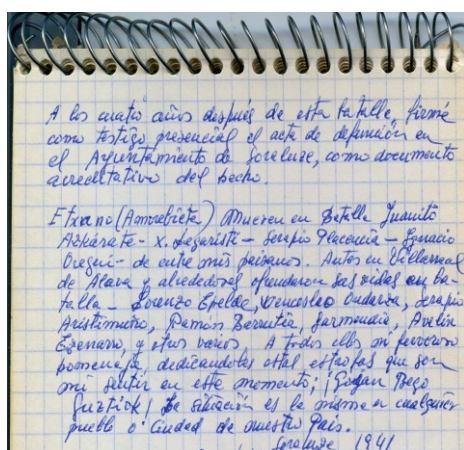 A los cuatro años después de esta batalla, firmé
como testigo presencial el acta de defunción en
el Ayuntamiento de Soraluze, como documento
acreditativo del hecho.
Etxano (Amorebieta) Mueren en Batalla Juanito
Azkárate - X. Legaristi - Serapio Placencia - Ignacio
Oregui - de entre mis paisanos. Antes en Villarreal
de Alava y alrededores ofrendaron sus vidas en ba-
talla - Lorenzo Epelde, Wenceslao Ondarza, Serapio
Aristimuño, Ramón Berrutia, Garmendia, Avelin
Egenarro, y otros varios A todos ellos mi fervoroso
homenaje dedicandoles estas estrofas que son
mi sentir en este momento; ¡Gogoan Bego
Guztiok! La situación es la misma en cualquier
pueblo o Ciudad de nuestro Pais.
Soraluze 1941